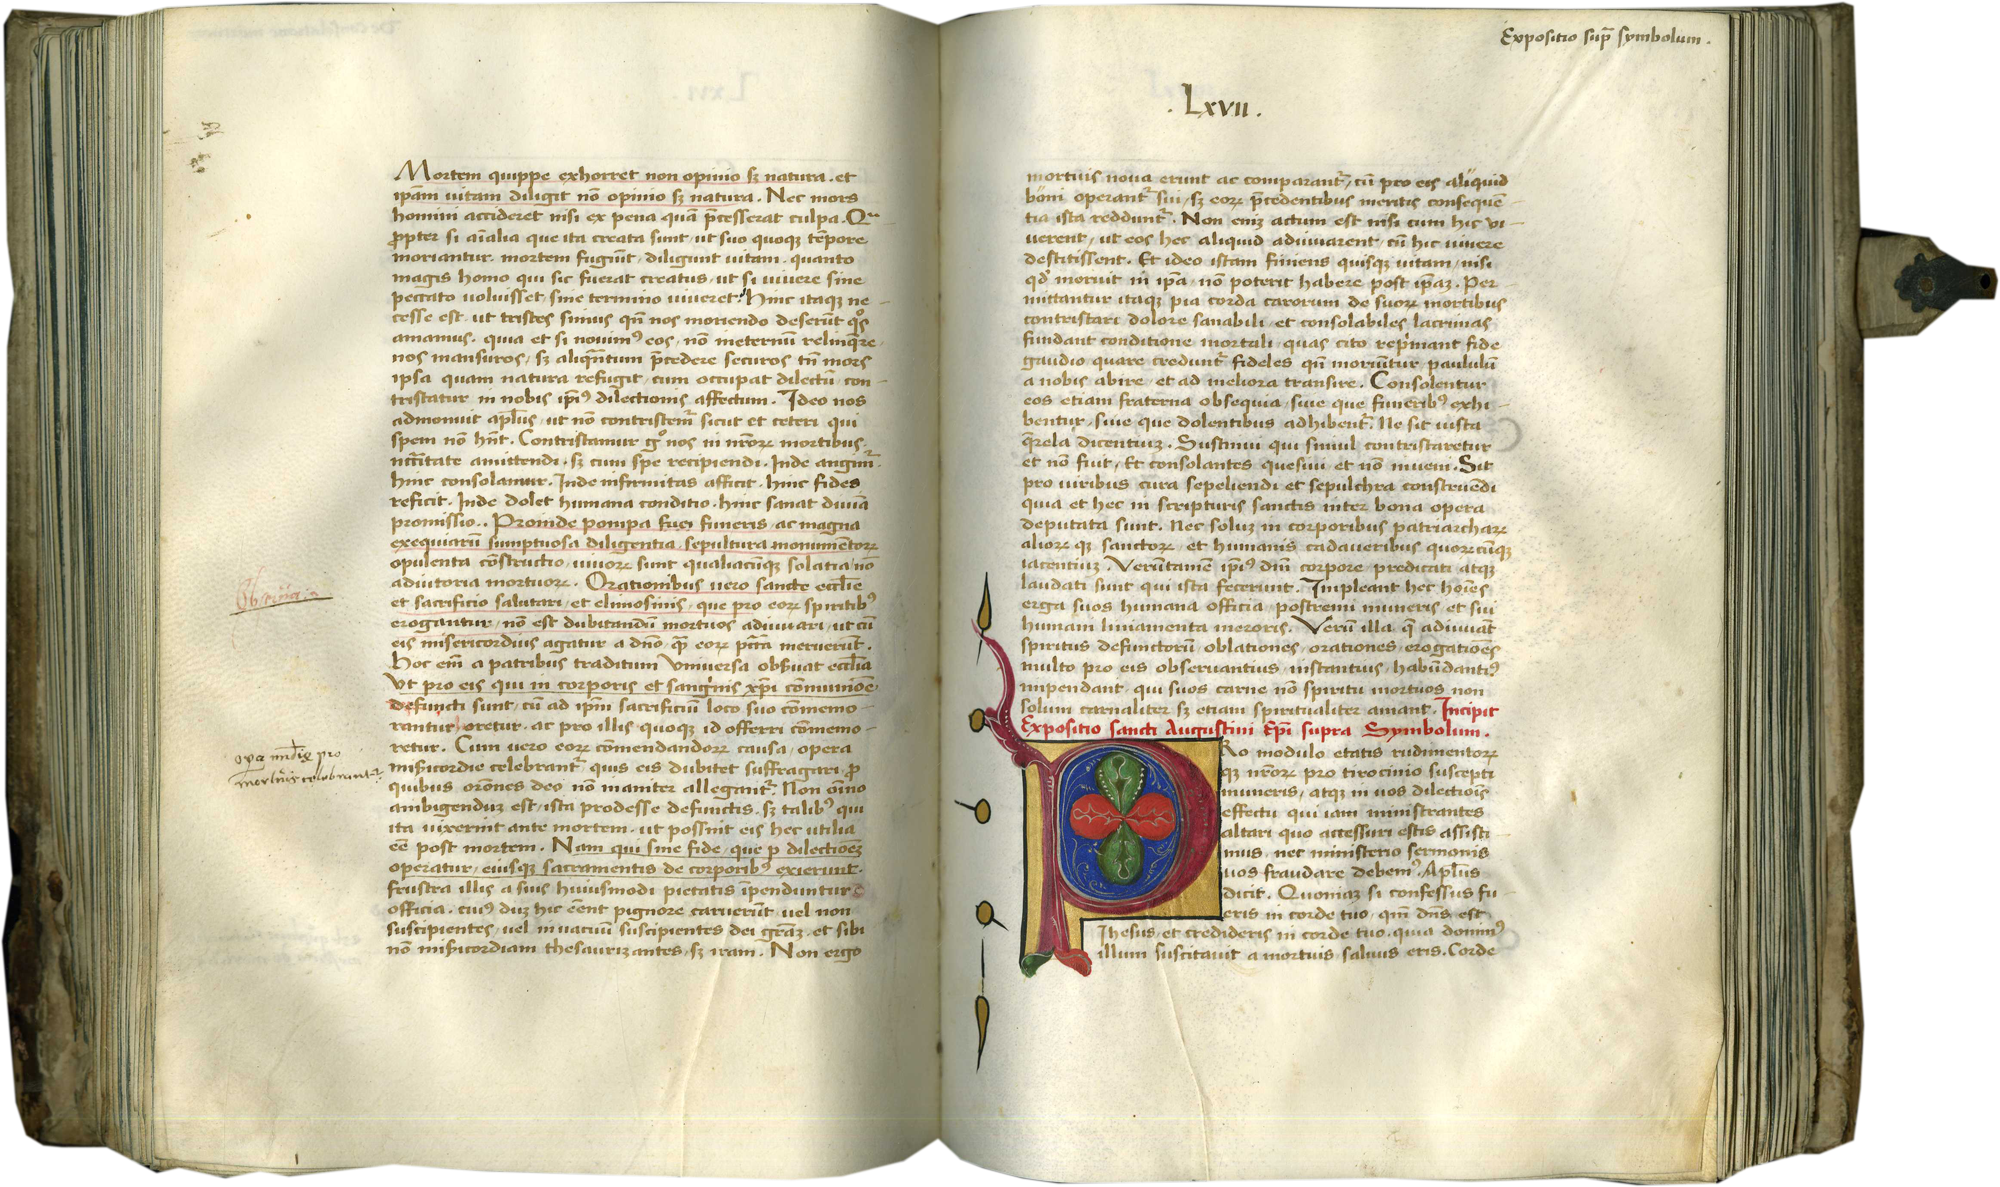 Mortem quippe exhorret non opinio sꝫ natura. et
ip̄am uitam diligit nō opinio sꝫ natura. Nec mors
homini accideret nisi ex pena quā p̄cesserat culpa. Qua
ꝓpter si aīalia que ita creata sunt, ut suo quoqꝫ tēpore
moriantur. mortem fugiūt, diligunt uitam. quanto
magis homo qui sic fuerat creatus, ut si uiuere sine
peccato uoluisset sine termino uiueret. Hinc itaqꝫ ne-
cesse est, ut tristes simus qn̄ nos moriendo deserūt qͦs
amamus. quia et si nouimꝰ eos, nō ineternū relinq̄re,
nos mansuros, sꝫ aliqn̄tum p̄cedere securos tn̄ mors
ipsa quam natura refugit, cum occupat dilectū, con-
tristatur in nobis ip̄iꝰ dilectionis affectum. Ideo nos
admonuit apl̄us, ut nō contristem̄ sicut et ceteri qui
spem nō hn̄t. Contristamur gͦ nos in nr̄oꝝ mortibus,
nc̄c̄itate amittendi, sꝫ cum spe recipiendi. Inde angim̄.
hinc consolamur. Inde infirmitas afficit. hinc fides
reficit. Inde dolet humana conditio. hinc sanat diuīa
promissio. Proinde pompa fuci funeris, ac magna
exequiarū sumptuosa diligentia, sepultura monumētoꝝ
opulenta cōstructio, uiuoꝝ sunt qualiacūqꝫ solatia nō
adiutoria mortuoꝝ. Orationibus uero sancte eccl̄ie
et sacrificio salutari, et elimosinis, que pro eoꝝ spiritibꝰ
erogantur, nō est dubitandū mortuos adiuuari, ut cū
eis misericordius agatur a dn̄o, q̄ eoꝝ pc̄c̄ta meruerūt.
Hoc em̄ a patribus traditum Vniuersa obs̄uat eccl̄ia
Vt pro eis qui in corporis et sang̍nis xp̄i cōmuniōe
defuncti sunt, cū ad ip̄m sacrificiū loco suo cōmemo-
rantur, oretur. ac pro illis quoqꝫ id offerri cōmemo-
retur. Cum uero eoꝝ cōmendandoꝝ causa, opera
mis̄icordie celebrant̄ quis eis dubitet suffragari, ꝓ
quibus orōnes deo nō inaniter allegant̄. Non oīno
ambigenduꝫ est, ista prodesse defunctis, sꝫ talibꝰ qui
ita uixerint ante mortem, ut possint eis hec utilia
eē post mortem. Nam qui sine fide, que ꝑ dilectiōeꝫ
operatur, eiusqꝫ sacramentis de corporibꝰ exierūt.
frustra illis a suis huiusmodi pietatis īpenduntur
officia. cuiꝰ duꝫ hic eēnt pignore caruerūt, uel non
suscipientes, uel in uacuū suscipientes dei gr̄aꝫ, et sibi
nō mis̄icordiam thesaurizantes, sꝫ iram. Non ergo
opa mīe pro
mortuis celebrant̄.
Expositio sup̄ symbolum.
.Lxvii.
mortuis noua erunt ac comparant̄, cū pro eis aliquid
boni operant̄ sui, sꝫ eoꝝ p̄cedentibus meritis consequē-
tia ista reddunt̄. Non enīꝫ actum est nisi cum hic ui-
uerent, ut eos hec aliquid adiuuarent, cū hic uiuere
destitissent. Et ideo istam finiens quisqꝫ uitam, nisi
qd̄ meruit in ip̄a, nō poterit habere post ip̄aꝫ. Per-
mittantur itaqꝫ pia corda carorum de suoꝝ mortibus
contristari dolore sanabili, et consolabiles lacrimas
fundant conditione mortali, quas cito rep̍mant fide
gaudio, quare credunt̄ fideles qn̄ moriūtur, paululū
a nobis abire, et ad meliora transire. Consolentur
eos etiam fraterna obsequia, siue que funeribꝰ exhi-
bentur, siue que dolentibus adhibent̄. Ne sit iusta
q̄rela dicentiuꝫ. Sustinui qui simul contristaretur
et nō fuit, Et consolantes quesiui et nō inueni. Sit
pro uiribus cura sepeliendi et sepulchra construēdi
quia et hec in scripturis sanctis inter bona opera
deputata sunt. Nec soluꝫ in corporibus patriarchaꝝ
alioꝝ qꝫ sanctoꝝ, et humanis cadaueribus quoꝝcūqꝫ
iacentiuꝫ Verūtamen ip̄iꝰ dn̄i corpore, predicati atqꝫ
laudati sunt qui ista fecerunt. Impleant hec hoīes
erga suos humana officia, postremi muneris et sui
humani liniamenta meroris. Verū illa, q̄ adiuuāt
spiritus defunctorū oblationes, orationes, erogatiōes
multo pro eis obseruantius, instantius, habūdantiꝰ
impendant, qui suos carne nō spiritu mortuos non
solum carnaliter sꝫ etiam spiritualiter amant. Incipit
Expositio sancti Augustini Ep̄i supra Symbolum.
PRo modulo etatis rudimentoꝝ
qꝫ nr̄oꝝ pro tirocinio suscepti
muneris, atqꝫ in uos dilectiōis
effectu qui iam ministrantes
altari quo accessuri estis assisti-
mus, nec ministerio sermonis
uos fraudare debemꝰ. Apl̄us
dicit. Quoniaꝫ si confessus fu-
eris in corde tuo, qm̄ dn̄s est
Ihesus, et credideris in corde tuo, quia dominꝰ
illum suscitauit a mortuis, saluus eris. Corde